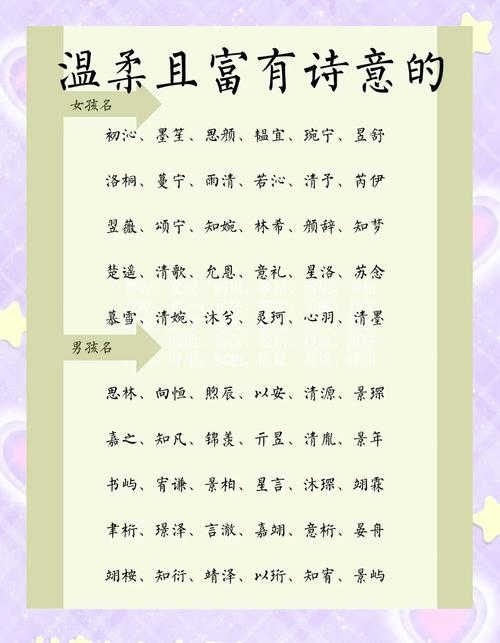 温柔且富有诗意的
女孩名
初沁、墨笙、思颜、韫宜、琬宁、昱舒
洛桐、蔓宁、雨清、若沁、清予、芮伊
翌薇、颂宁、知婉、林希、颜辞、知梦
楚遥、清歌、允恩、意礼、星洛、苏念
慕雪、清婉、沐兮、灵珂、心羽、清墨
男孩名
思林、向恒、煦辰、以安、清源、景琛
嘉之、知凡、锦羡、亓昱、清胤、景年
书屿、宥谦、景柏、星言、沐琛、翊霖
聿桁、璟泽、言澈、嘉翊、意桁、晏舟
翊桉、知衍、靖泽、以珩、知宥、景屿